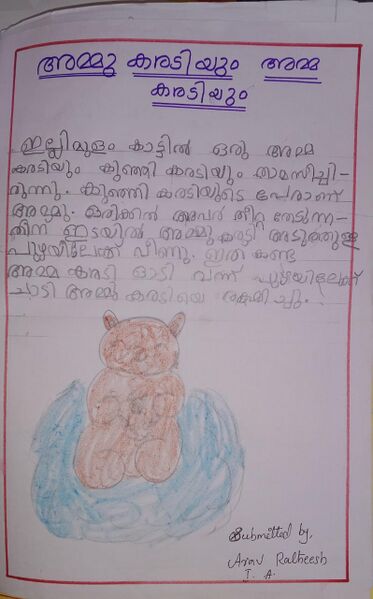 അമ്മു കരടിയും അമ്മ
കരടിയും
ഇല്ലിമുളം കാട്ടിൽ ഒരു അമ്മ
കരടിയും കുഞ്ഞി കരടിയും താമസിച്ചി-
രുന്നു. കുഞ്ഞി കരടിയുടെ പേരാണ്
അമ്മു. ഒരിക്കൽ അവർ തീറ്റ തേടുന്ന-
തിന് ഇടയിൽ അമ്മു കരടി അടുത്തുള്ള
പുഴയിലേക്ക് വീണു. ഇത് കണ്ട
അമ്മ കരടി ഓടി വന്ന് പുഴയിലേക്ക്
ചാടി അമ്മു കരടിയെ രക്ഷിച്ചു.
Submitted by,
Arav Ratheesh
I. A.